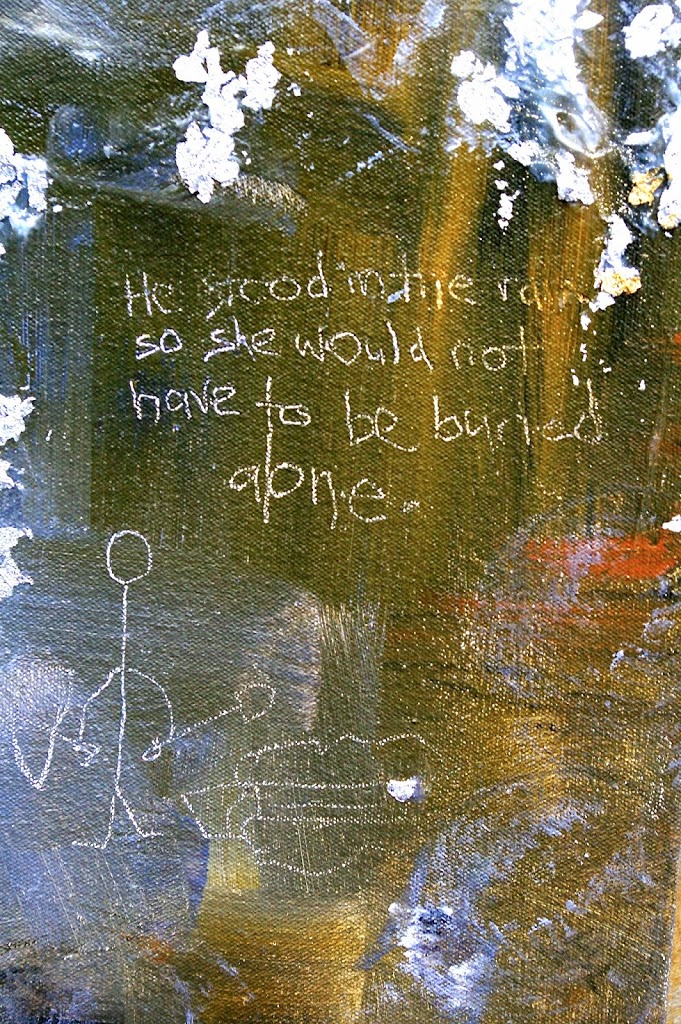 He stood in the rain
so she would not
have to be buried
alone.